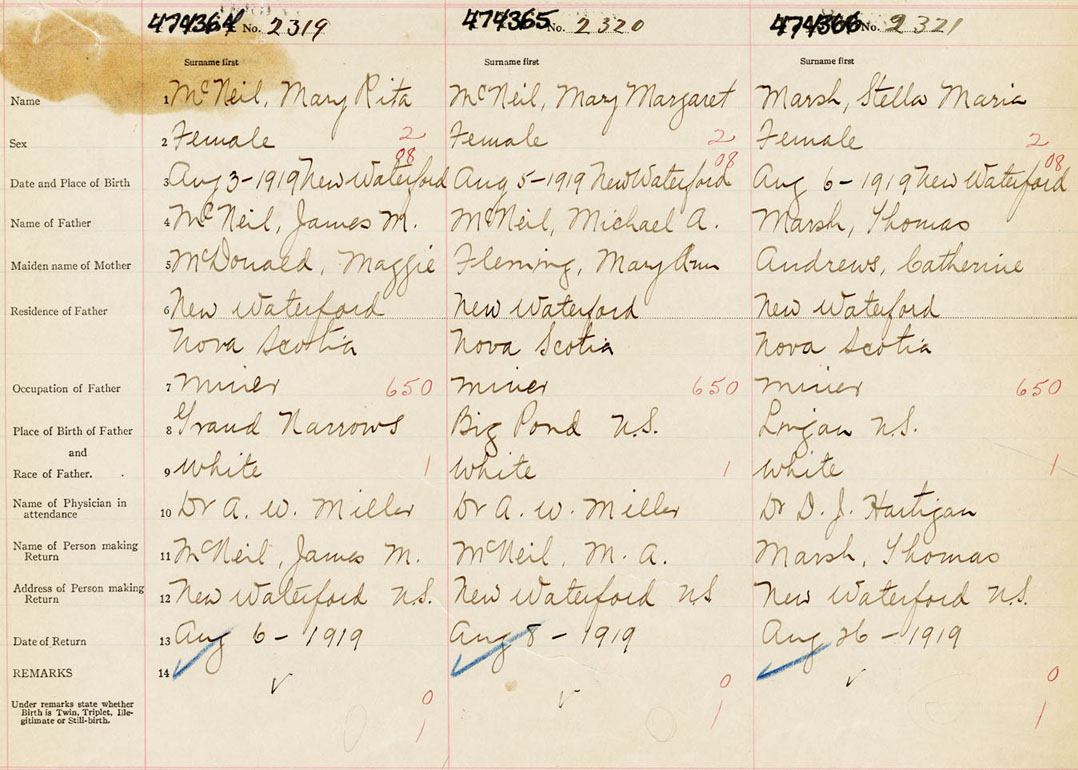 474364 No. 2319 474365 No. 2320 474366 No. 2321
Surname first Surname first Surname first
Name 1 McNeil, Mary Rita McNeil, Mary Margaret Marsh, Stella Maria
Sex 2 Female 2 Female 2 Female 2
08 08 08
Date and Place of Birth 3 Aug 3-1919 New Waterford Aug 5-1919 New Waterford Aug 6-1919 New Waterford
Name of Father 4 McNeil, James M. McNeil, Michael A. Marsh, Thomas
Maiden name of Mother 5 McDonald, Maggie Fleming, Mary Ann Andrews, Catherine
Residence of Father 6 New Waterford New Waterford New Waterford
Nova Scotia Nova Scotia Nova Scotia
Occupation of Father 7 Miner 650 Miner 650 Miner 650
Place of Birth of Father 8 Grand Narrows Big Pond N.S. Lingan N.S.
and
Race of Father. 9 White 1 White 1 White 1
Name of Physician in
attendance 10 Dr A. W. Miller Dr A. W. Miller Dr D. J. Hartigan
Name of Person making
Return 11 McNeil, James M. McNeil, M. A. Marsh, Thomas
Address of Person making
Return 12 New Waterford N.S. New Waterford N.S New Waterford N.S.
Date of Return 13 Aug 6-1919 Aug 8-1919 Aug 26-1919
REMARKS 14
0 0 0
Under remarks state whether
Birth is Twin, Triplet, Ille-
gitimate or Still-birth.
1 1 1